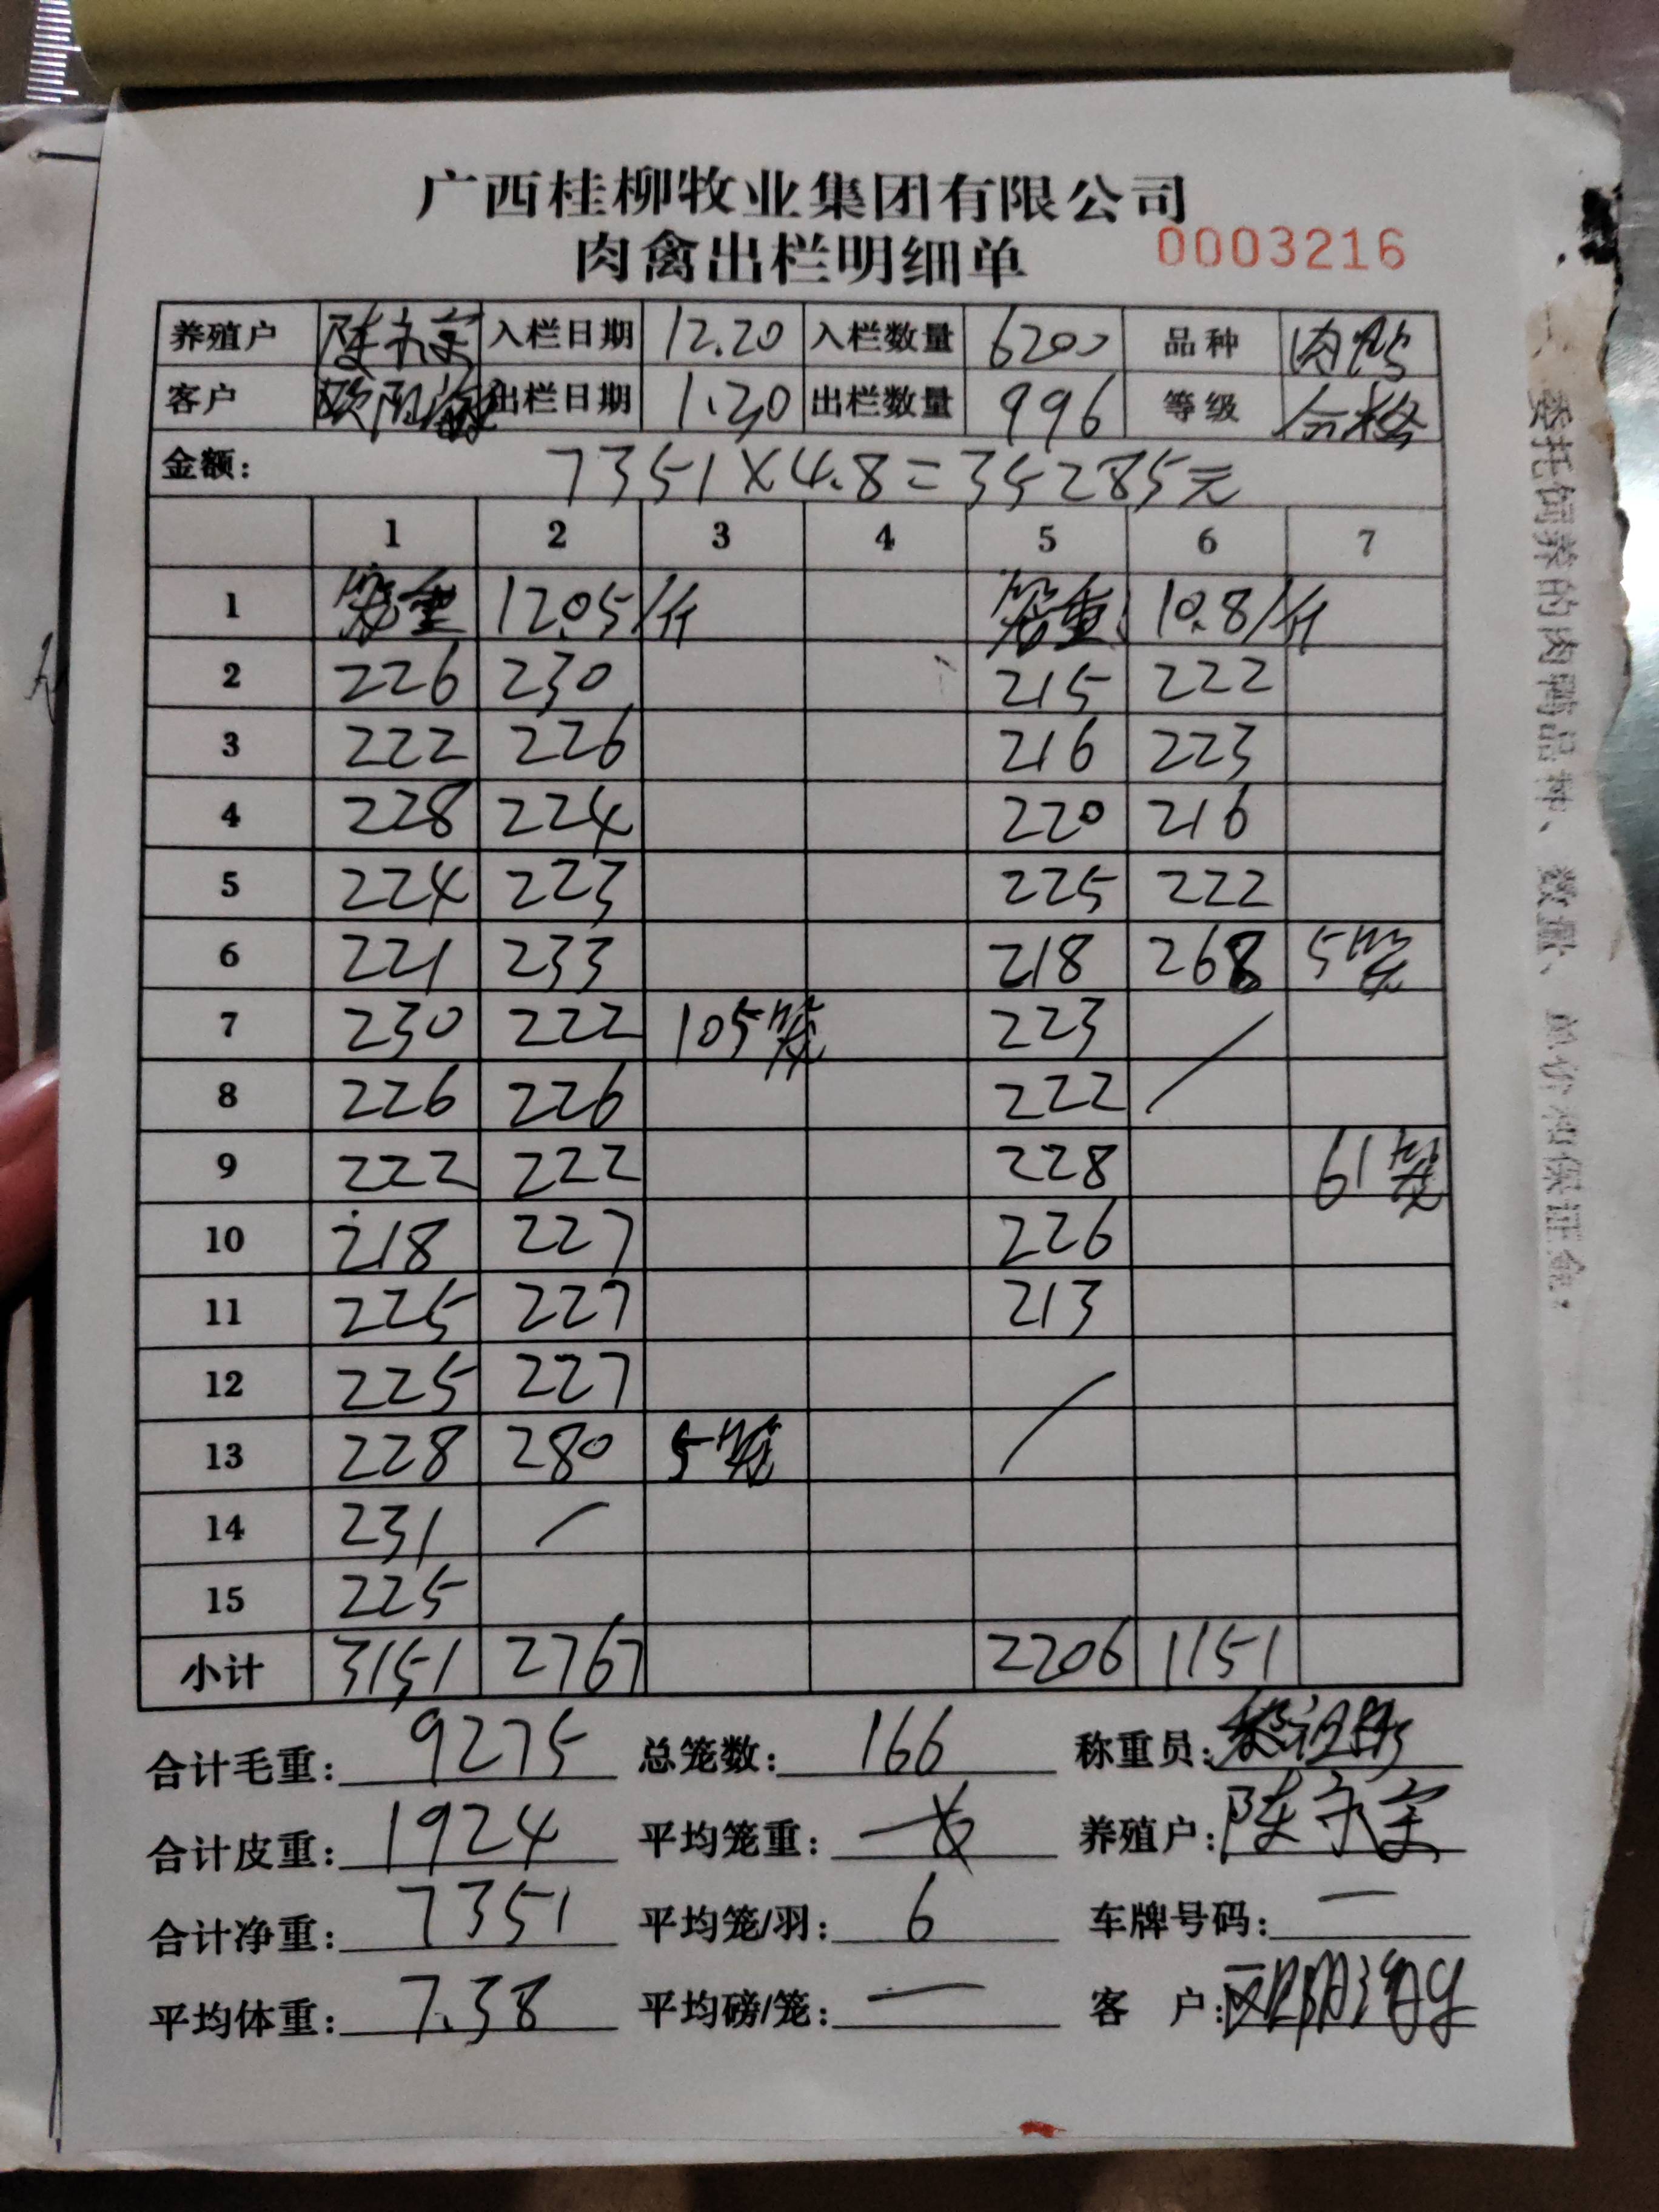 广西桂柳牧业集团有限公司
肉禽出栏明细单 0003216
养殖户 陈守宝 入栏日期 12.20 入栏数量 6200 品种 肉鸭
客户 欧阳海 出栏日期 1.20 出栏数量 996 等级 合格
金额: 7351×4.8=35285元
1 2 3 4 5 6 7
1 笼重 12.05/斤 笼重 10.8/斤
2 226 230 215 222
3 222 226 216 223
4 228 224 220 216
5 224 223 225 222
6 221 233 218 268 5笼
7 230 222 105笼 223
8 226 226 222
9 222 222 228 61笼
10 218 227 226
11 225 227 213
12 225 227
13 228 280 5笼
14 231
15 225
小计 3151 2767 2206 1151
合计毛重: 9275 总笼数: 166 称重员:
合计皮重: 1924 平均笼重: 养殖户: 陈守宝
合计净重: 7351 平均笼/羽: 6 车牌号码: 一
平均体重: 7.38 平均磅/笼: 一 客 户: 欧阳海
委托饲养的肉鸭品种、数量、单价和保证金: